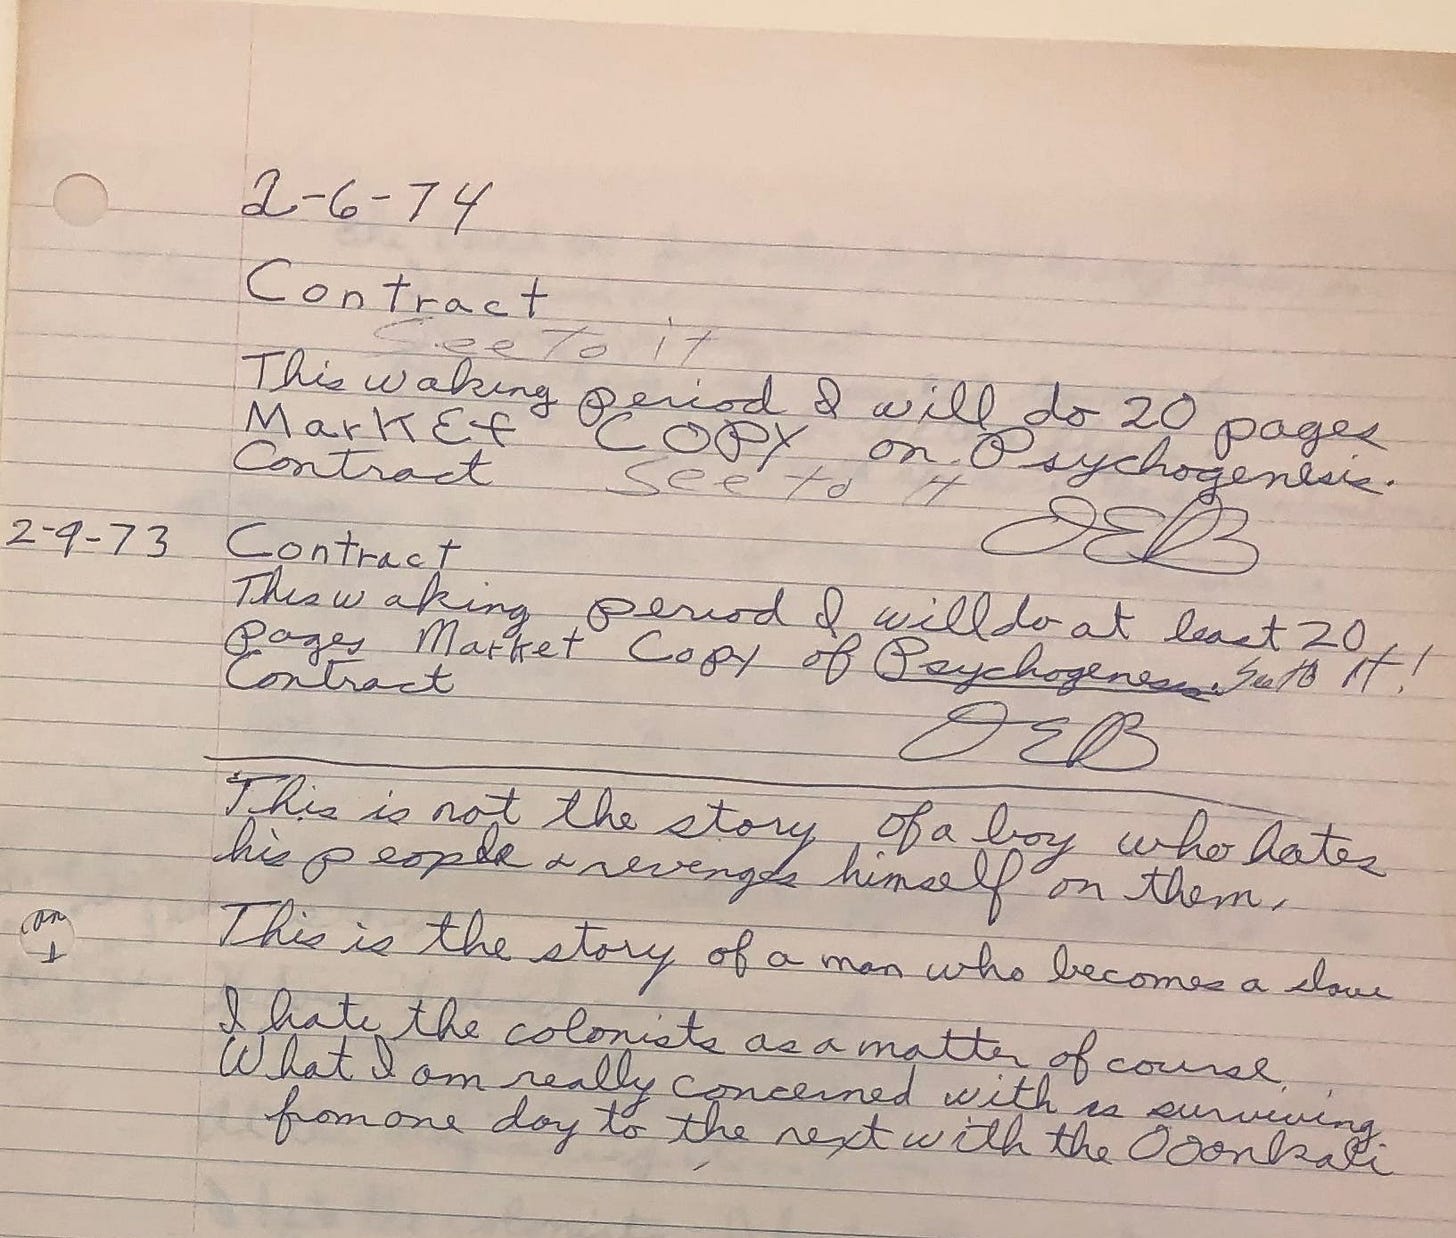 2-6-74
Contract
See to it
This waking period I will do 20 pages
Market COPY on Psychogenesis.
Contract See to it
OEB
2-9-73 Contract
This waking period I will do at least 20
pages Market Copy of Psychogenesis. See to it!
Contract
OEB
This is not the story of a boy who hates
his people & revenges himself on them.
This is the story of a man who becomes a slave
I hate the colonists as a matter of course.
What I am really concerned with is surviving
from one day to the next with the